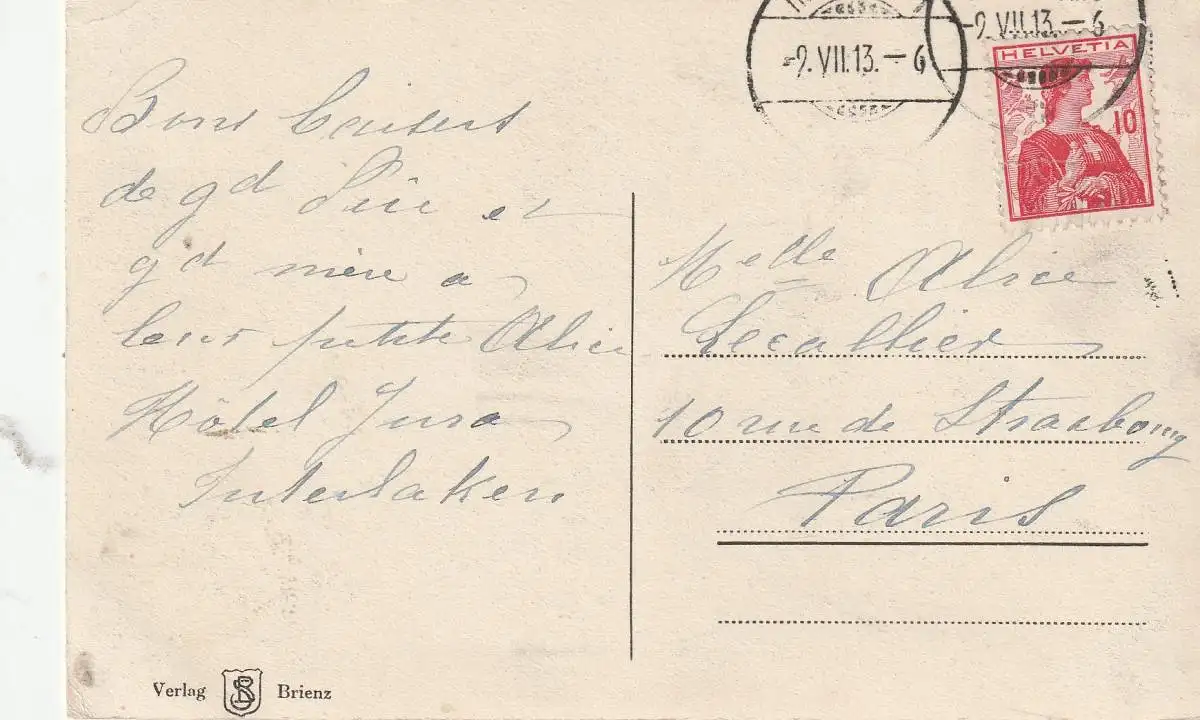 -9.VII.13.-6
-9.VII.13.-6
HELVETIA
10
Bons baisers
de gd Père et
gd mère a
leur petite Alice
Hôtel Jura
Interlaken
Melle Alice
Lecallier
10 rue de Strasbourg
Paris
Verlag SR Brienz